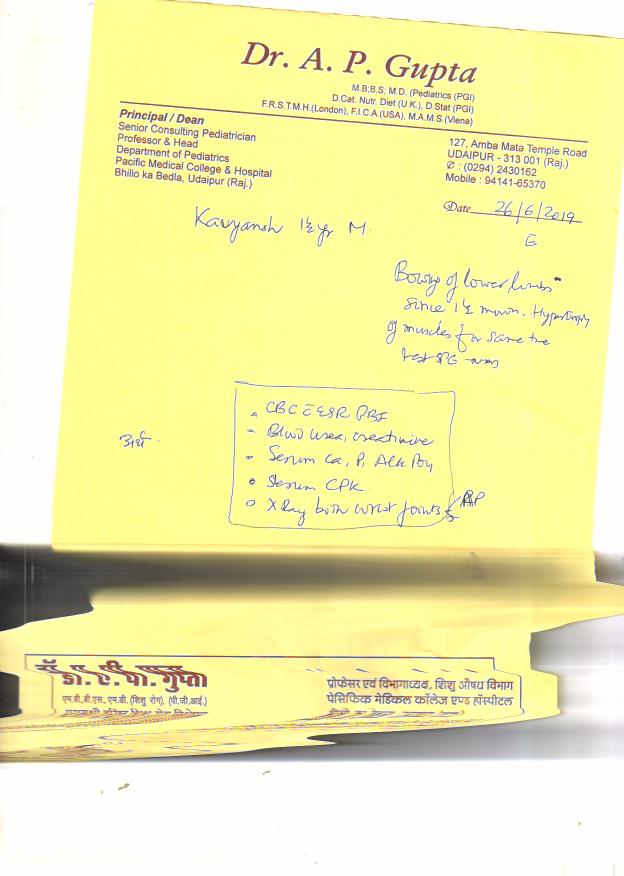 Dr. A. P. Gupta
M.B;B.S, M.D. (Pediatrics (PGI)
D.Cat. Nutr. Diet (U.K.), D.Stat (PGI)
F.R.S.T.M.H.(London), F.I.C.A.(USA), M.A.M.S.(Viena)
Principal / Dean
Senior Consulting Pediatrician
Professor & Head
Department of Pediatrics
Pacific Medical College & Hospital
Bhillo ka Bedla, Udaipur (Raj.)
127, Amba Mata Temple Road
UDAIPUR - 313 001 (Raj.)
✆ : (0294) 2430162
Mobile : 94141-65370
Date 26/6/2019
Kavyansh 1½ yr M.
Bowing of lower limbs
since 1½ . Hypertrophy
of muscles for same
CBC c̄ ESR, PBF
Blood urea, creatinine
Serum Ca, P, Alk
Serum CPK
X Ray both wrist joints AP
डॉ. ए. पी. गुप्ता
एम.बी.बी.एस., एम.डी. (शिशु रोग), (पी.जी.आई.)
प्रोफेसर एवं विभागाध्यक्ष, शिशु औषध विभाग
पेसिफिक मेडिकल कॉलेज एण्ड हॉस्पीटल